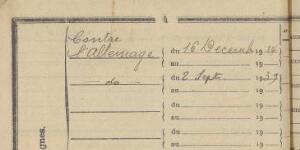 à
Contre
l'Allemagne du 16 Decemb 1914
au 19
do du 2 Sept. 1939
au 19
du 19
au 19
du 19
au 19